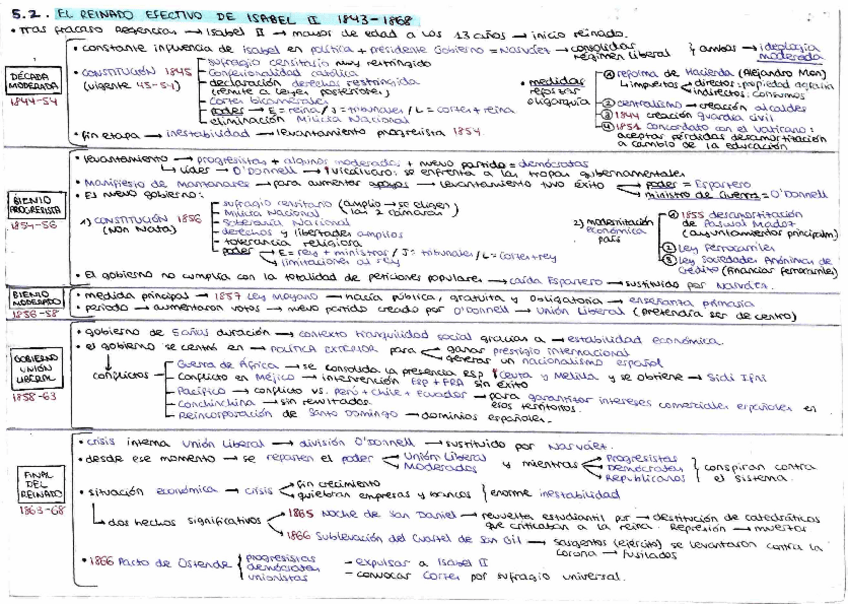 5.2. EL REINADO EFECTIVO DE ISABEL II 1843-1868
• Tras fracaso Regencias → Isabel II → mayor de edad a los 13 años → inicio reinado.
DÉCADA MODERADA
1844-54
• constante influencia de Isabel en política + presidente Gobierno = Narváez → consolidar régimen liberal } ambos → ideología moderada
• CONSTITUCIÓN 1845 (vigente 45-54)
- sufragio censitario muy restringido
- Confesionalidad católica
- declaración derechos restringida (remite a leyes posteriores)
- Cortes bicamerales
- poder → E = reina / J = tribunales / L = cortes + reina
- eliminación Milicia Nacional
• medidas
oligarquía
① reforma de Hacienda (Alejandro Mon)
impuestos
directos: propiedad agraria
indirectos: consumos
② centralismo → creación alcaldes
③ 1844 creación guardia civil
④ 1851 concordato con el Vaticano: aceptar pérdidas desamortización a cambio de la educación
• fin etapa → inestabilidad → levantamiento progresista 1854.
BIENIO PROGRESISTA
1854-56
• levantamiento → progresistas + algunos moderados + nuevo partido = demócratas
↳ líder → O'Donnell → Vicálvaro: se enfrenta a las tropas gubernamentales
• Manifiesto de Manzanares → para aumentar apoyos → levantamiento tuvo éxito
poder = Espartero
ministro de Guerra = O'Donnell
• Es nuevo gobierno:
1) CONSTITUCIÓN 1856 (NON Nata)
- sufragio censitario (amplio → se eligen las 2 cámaras)
- Milicia Nacional
- Soberanía Nacional
- derechos y libertades amplios
- tolerancia religiosa
- poder → E = rey + ministros / J = tribunales / L = cortes + rey
limitaciones al rey
2) modernización económica país
① 1855 desamortización de Pascual Madoz (ayuntamientos principalm)
② Ley Ferrocarriles
③ Ley Sociedades Anónimas de Crédito (financiar ferrocarriles)
• El gobierno no cumplía con la totalidad de peticiones populares → caída Espartero → sustituido por Narváez.
BIENIO MODERADO
1856-58
• medida principal → 1857 Ley Moyano → hacía pública, gratuita y obligatoria → enseñanza primaria
• periodo → aumentaron votos → nuevo partido creado por O'Donnell → Unión Liberal (pretendía ser de centro)
GOBIERNO UNIÓN LIBERAL
1858-63
• gobierno de 5 años duración → contexto tranquilidad social gracias a → estabilidad económica.
• el gobierno se centró en → POLÍTICA EXTERIOR para
ganar prestigio internacional
generar un nacionalismo español
↳ conflictos
- Guerra de África → se consolida la presencia ESP Ceuta y Melilla y se obtiene → Sidi Ifni
- Conflicto en Méjico → intervención ESP + FRA sin éxito
- Pacífico → conflicto vs. Perú + Chile + Ecuador → para garantizar intereses comerciales españoles en esos territorios.
- Conchinchina → sin resultados
- Reincorporación de Santo Domingo → dominios españoles.
FINAL DEL REINADO
1863-68
• crisis interna Unión Liberal → división O'Donnell → sustituido por Narváez.
• desde ese momento → se reparten el poder
Unión Liberal
Moderados
y mientras
Progresistas
Demócratas
Republicanos
} conspiran contra el sistema.
• situación económica → crisis
fin crecimiento
quiebran empresas y bancos
} enorme inestabilidad
↳ dos hechos significativos
1865 Noche de San Daniel → revuelta estudiantil por → destitución de catedráticos que criticaban a la reina. Represión → muertos
1866 Sublevación del Cuartel de San Gil → sargentos (ejército) se levantaron contra la corona → fusilados
• 1866 Pacto de Ostende
progresistas
demócratas
unionistas
- expulsar a Isabel II
- convocar Cortes por sufragio universal.